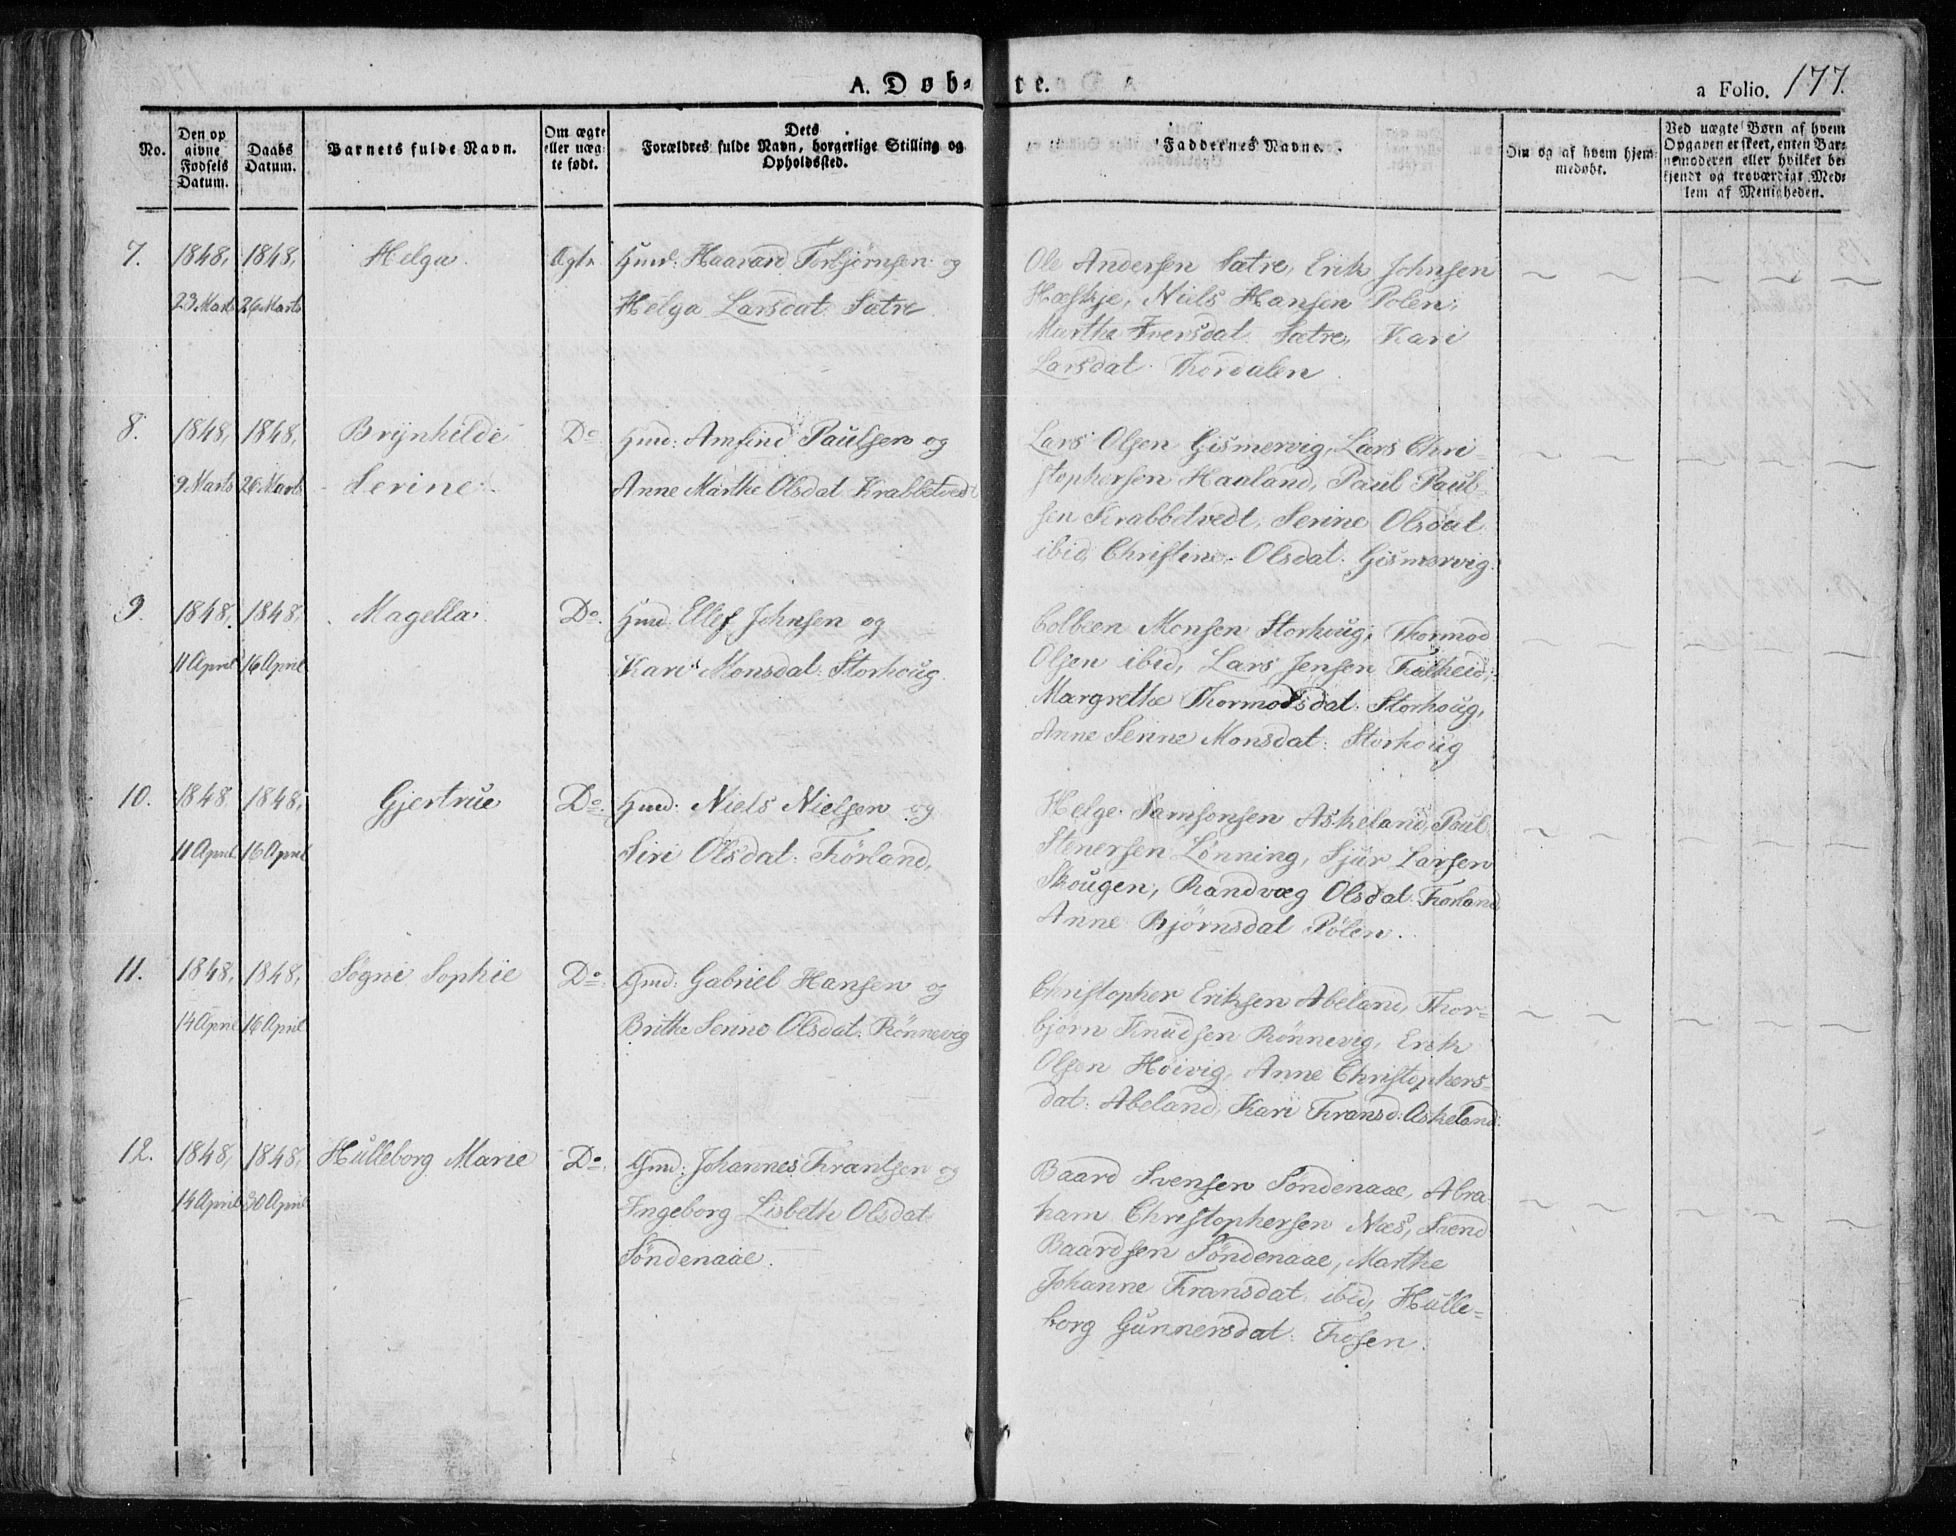 A. Døb-te.
a Folio. 177.
No.
Den op
givne
Fødsels
Datum.
Daabs
Datum.
Barnets fulde Navn.
Om ægte
eller uæg
te født.
Dets
Forældres fulde Navn, borgerlige Stilling og
Opholdssted.
Faddernes Navne.
Om og af hvem hjem-
medøbt.
Ved uægte Børn af hvem
Opgaven er skeet, enten Bar-
nemoderen eller hvilket be-
kjendt og troværdigt Med-
lem af Menigheden.
7. 1848, 1848, Helga. Ægte Gmd: Haavard Torbjørnsen og
23 Marts 26 Marts Helga Larsdat: Sætre
Ole Andersen Sætre, Erik Johnsen
Niels Hansen Pølen,
Marthe Iversdat Sætre, Kari
Larsdat: Thordalen.
8. 1848, 1848, Brynhilde Do Gmd: Amfind Paulsen og
9 Marts 26 Marts Serine. Anne Marthe Olsdat Krabbetvedt
Lars Olsen Gismervig, Lars Chri-
stophersen Haaland, Paul Paul-
sen Krabbetvedt, Serine Olsdat
ibid, Christine Olsdat: Gismervig.
9. 1848, 1848, Magella. Do. Gmd: Ellef Johnsen og
11 April 16 April Kari Monsdat: Storhoug.
Colbein Monsen Storhoug, Thormod
Olsen ibid, Lars Jensen
Margrethe Thormodsdat: Storhoug,
Anne Serine Monsdat: Storhoug
10. 1848 1848, Gjertrue Do. Gmd: Niels Nielsen og
11 April 16 April Siri Olsdat: Førland,
Helge Samsonsen Askeland, Paul
Stenersen Lønning, Sjur Larsen
Skougen, Randvæg Olsdat: Førland
Anne Bjørnsdat Pølen.
11. 1848, 1848, Søgni Sophie Do. Gmd: Gabriel Hansen og
14 April 16 April Brithe Serine Olsdat: Rønnevig
Christopher Eriksen Abeland, Thor-
bjørn Knudsen Rønnevig, Erik
Olsen Høivig, Anne Christophers-
dat: Abeland, Kari Fransd: Askeland.
12. 1848, 1848, Hulleborg Marie Do. Gmd: Johannes Frantsen og
14 April 30 April Ingeborg Lisbeth Olsdat
Søndenaae.
Baard Svensen Søndenaae, Abra-
ham Christophersen Næs, Svend
Baardsen Søndenaae, Marthe
Johanne Fransdat: ibid, Hulle-
borg Gunnersdat: Fosen.